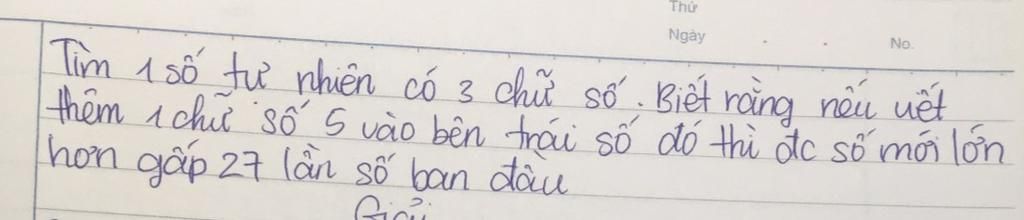 Thứ
Ngày
No.
Tìm 1 số tự nhiên có 3 chữ số. Biết rằng nếu viết
thêm 1 chữ số 5 vào bên trái số đó thì đc số mới lớn
hơn gấp 27 lần số ban đầu
Giải